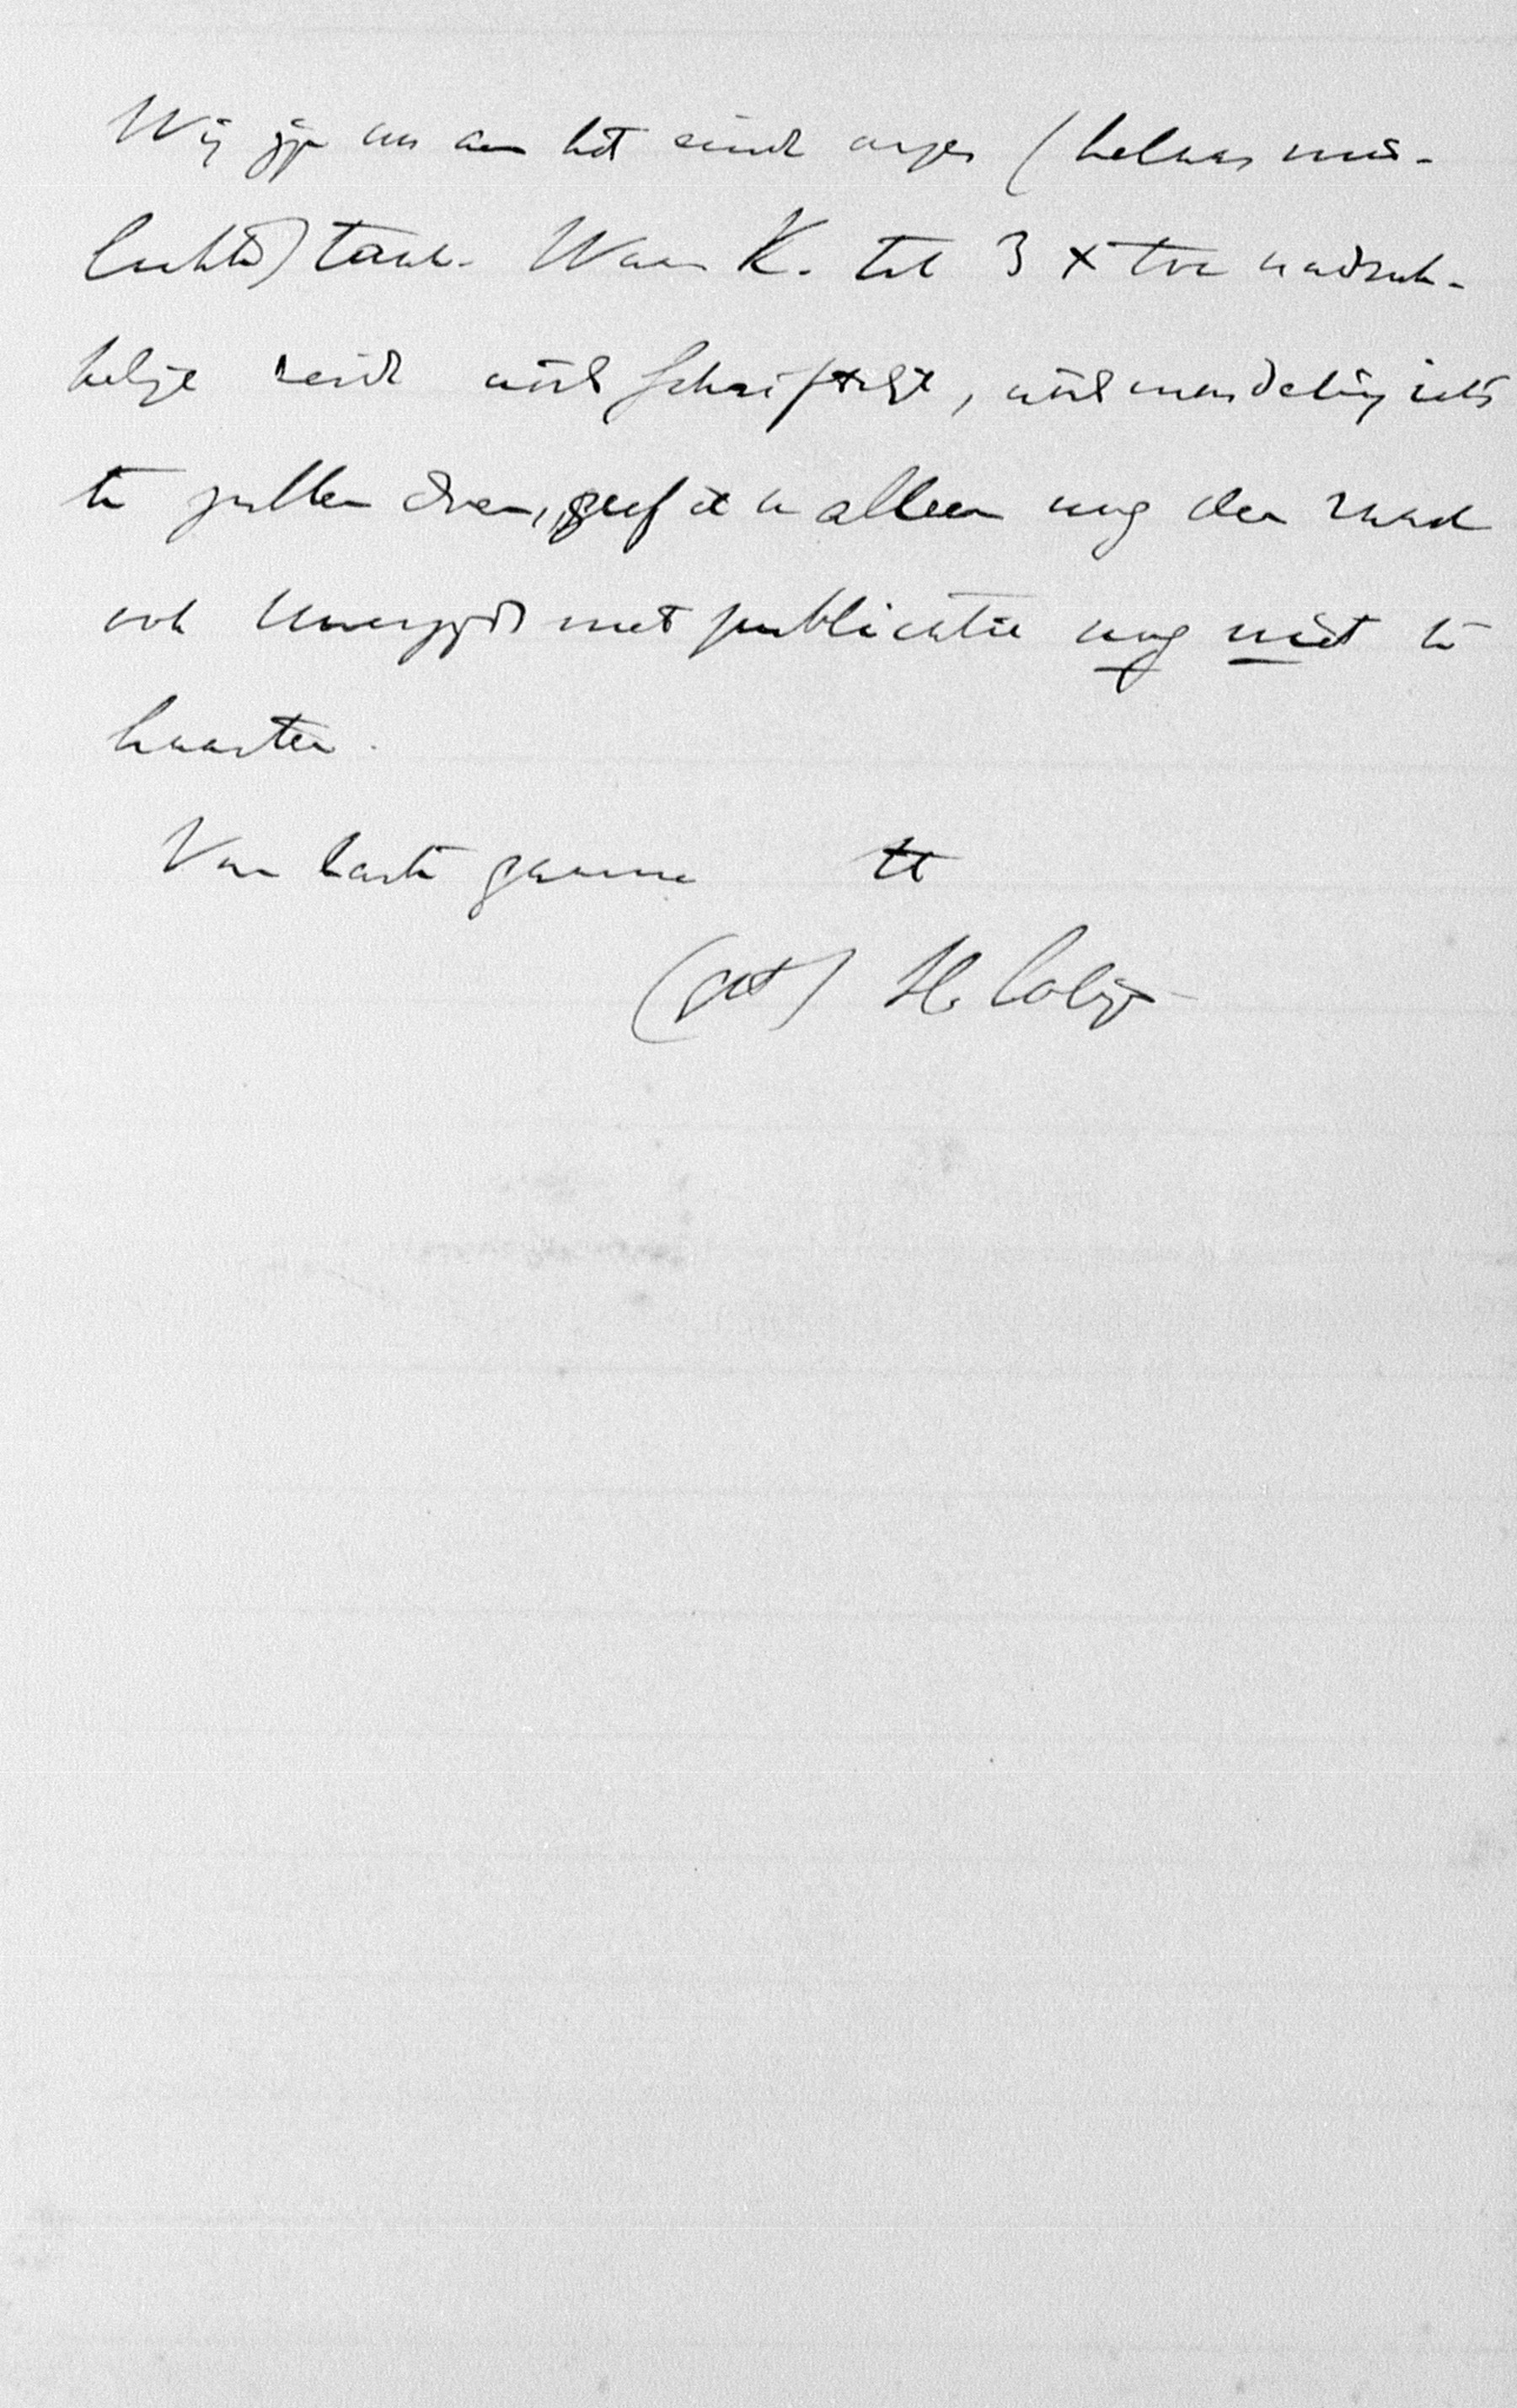 Wij zijn nu aan het eind onzer (helaas mis-
lukte) taak. Waar K. tot 3 x toe nadruk-
kelijk zeide nòch schriftelijk, nòch mondeling iets
te zullen doen, geef ik u alleen nog den raad
ook Uwerzijds met publicatie nog niet te
haasten.
Van harte gaarne tt
(get) H. Colijn